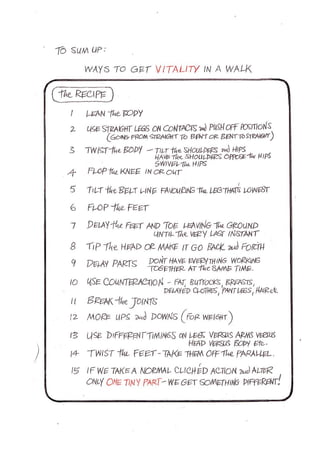 TO SUM UP:
WAYS TO GET VITALITY IN A WALK
the RECIPE
1 LEAN the BODY
2 USE STRAIGHT LEGS ON CONTACTS and PUSH OFF POSITIONS
(GOING FROM STRAIGHT TO BENT OR BENT STRAIGHT)
3 TWIST the BODY – TILT the SHOULDERS and HIPS
HAVE the SHOULDERS OPPOSE the HIPS
SWIVEL the HIPS
4 FLOP the KNEE IN OR OUT
5 TILT the BELT LINE FAVOURING the LEG THATS LOWEST
6 FLOP the FEET
7 DELAY the FEET AND TOE LEAVING the GROUND
UNTIL the VERY LAST INSTANT
8 TIP the HEAD OR MAKE IT GO BACK and FORTH
9 DELAY PARTS DON'T HAVE EVERYTHING WORKING
TOGETHER AT the SAME TIME.
10 USE COUNTERACTION – FAT, BUTTOCKS, BREASTS,
DELAYED CLOTHES, PANT LEGS, HAIR etc.
11 BREAK the JOINTS
12 MORE UPS and DOWNS (FOR WEIGHT)
13 USE DIFFERENT TIMINGS ON LEGS VERSUS ARMS VERSUS
HEAD VERSUS BODY ETC.
14 TWIST the FEET – TAKE THEM OFF the PARALLEL.
15 IF WE TAKE A NORMAL CLICHÉD ACTION and ALTER
ONLY ONE TINY PART – WE GET SOMETHING DIFFERENT!